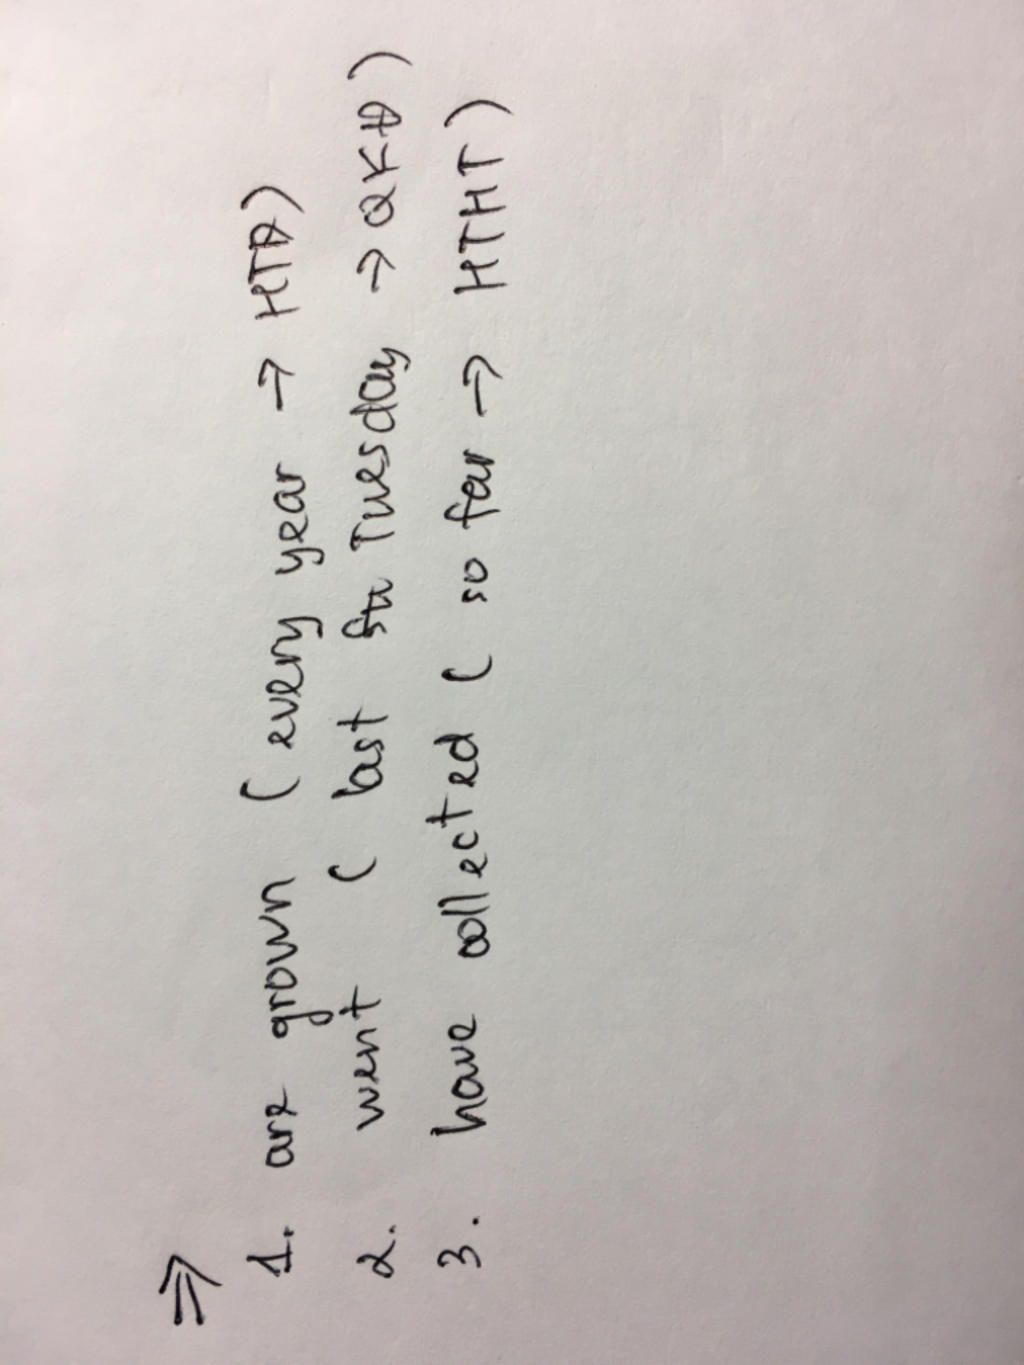 ⇒
1. are grown (every year → HTĐ)
2. went ( last Tuesday → QKĐ)
3. have collected ( so far → HTHT)